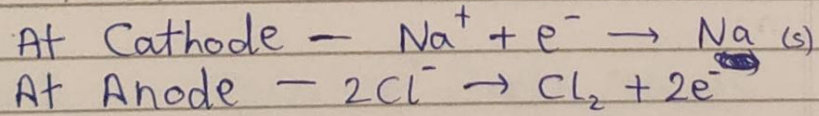 At Cathode – Na⁺ + e⁻ → Na (s)
At Anode – 2Cl⁻ → Cl₂ + 2e⁻